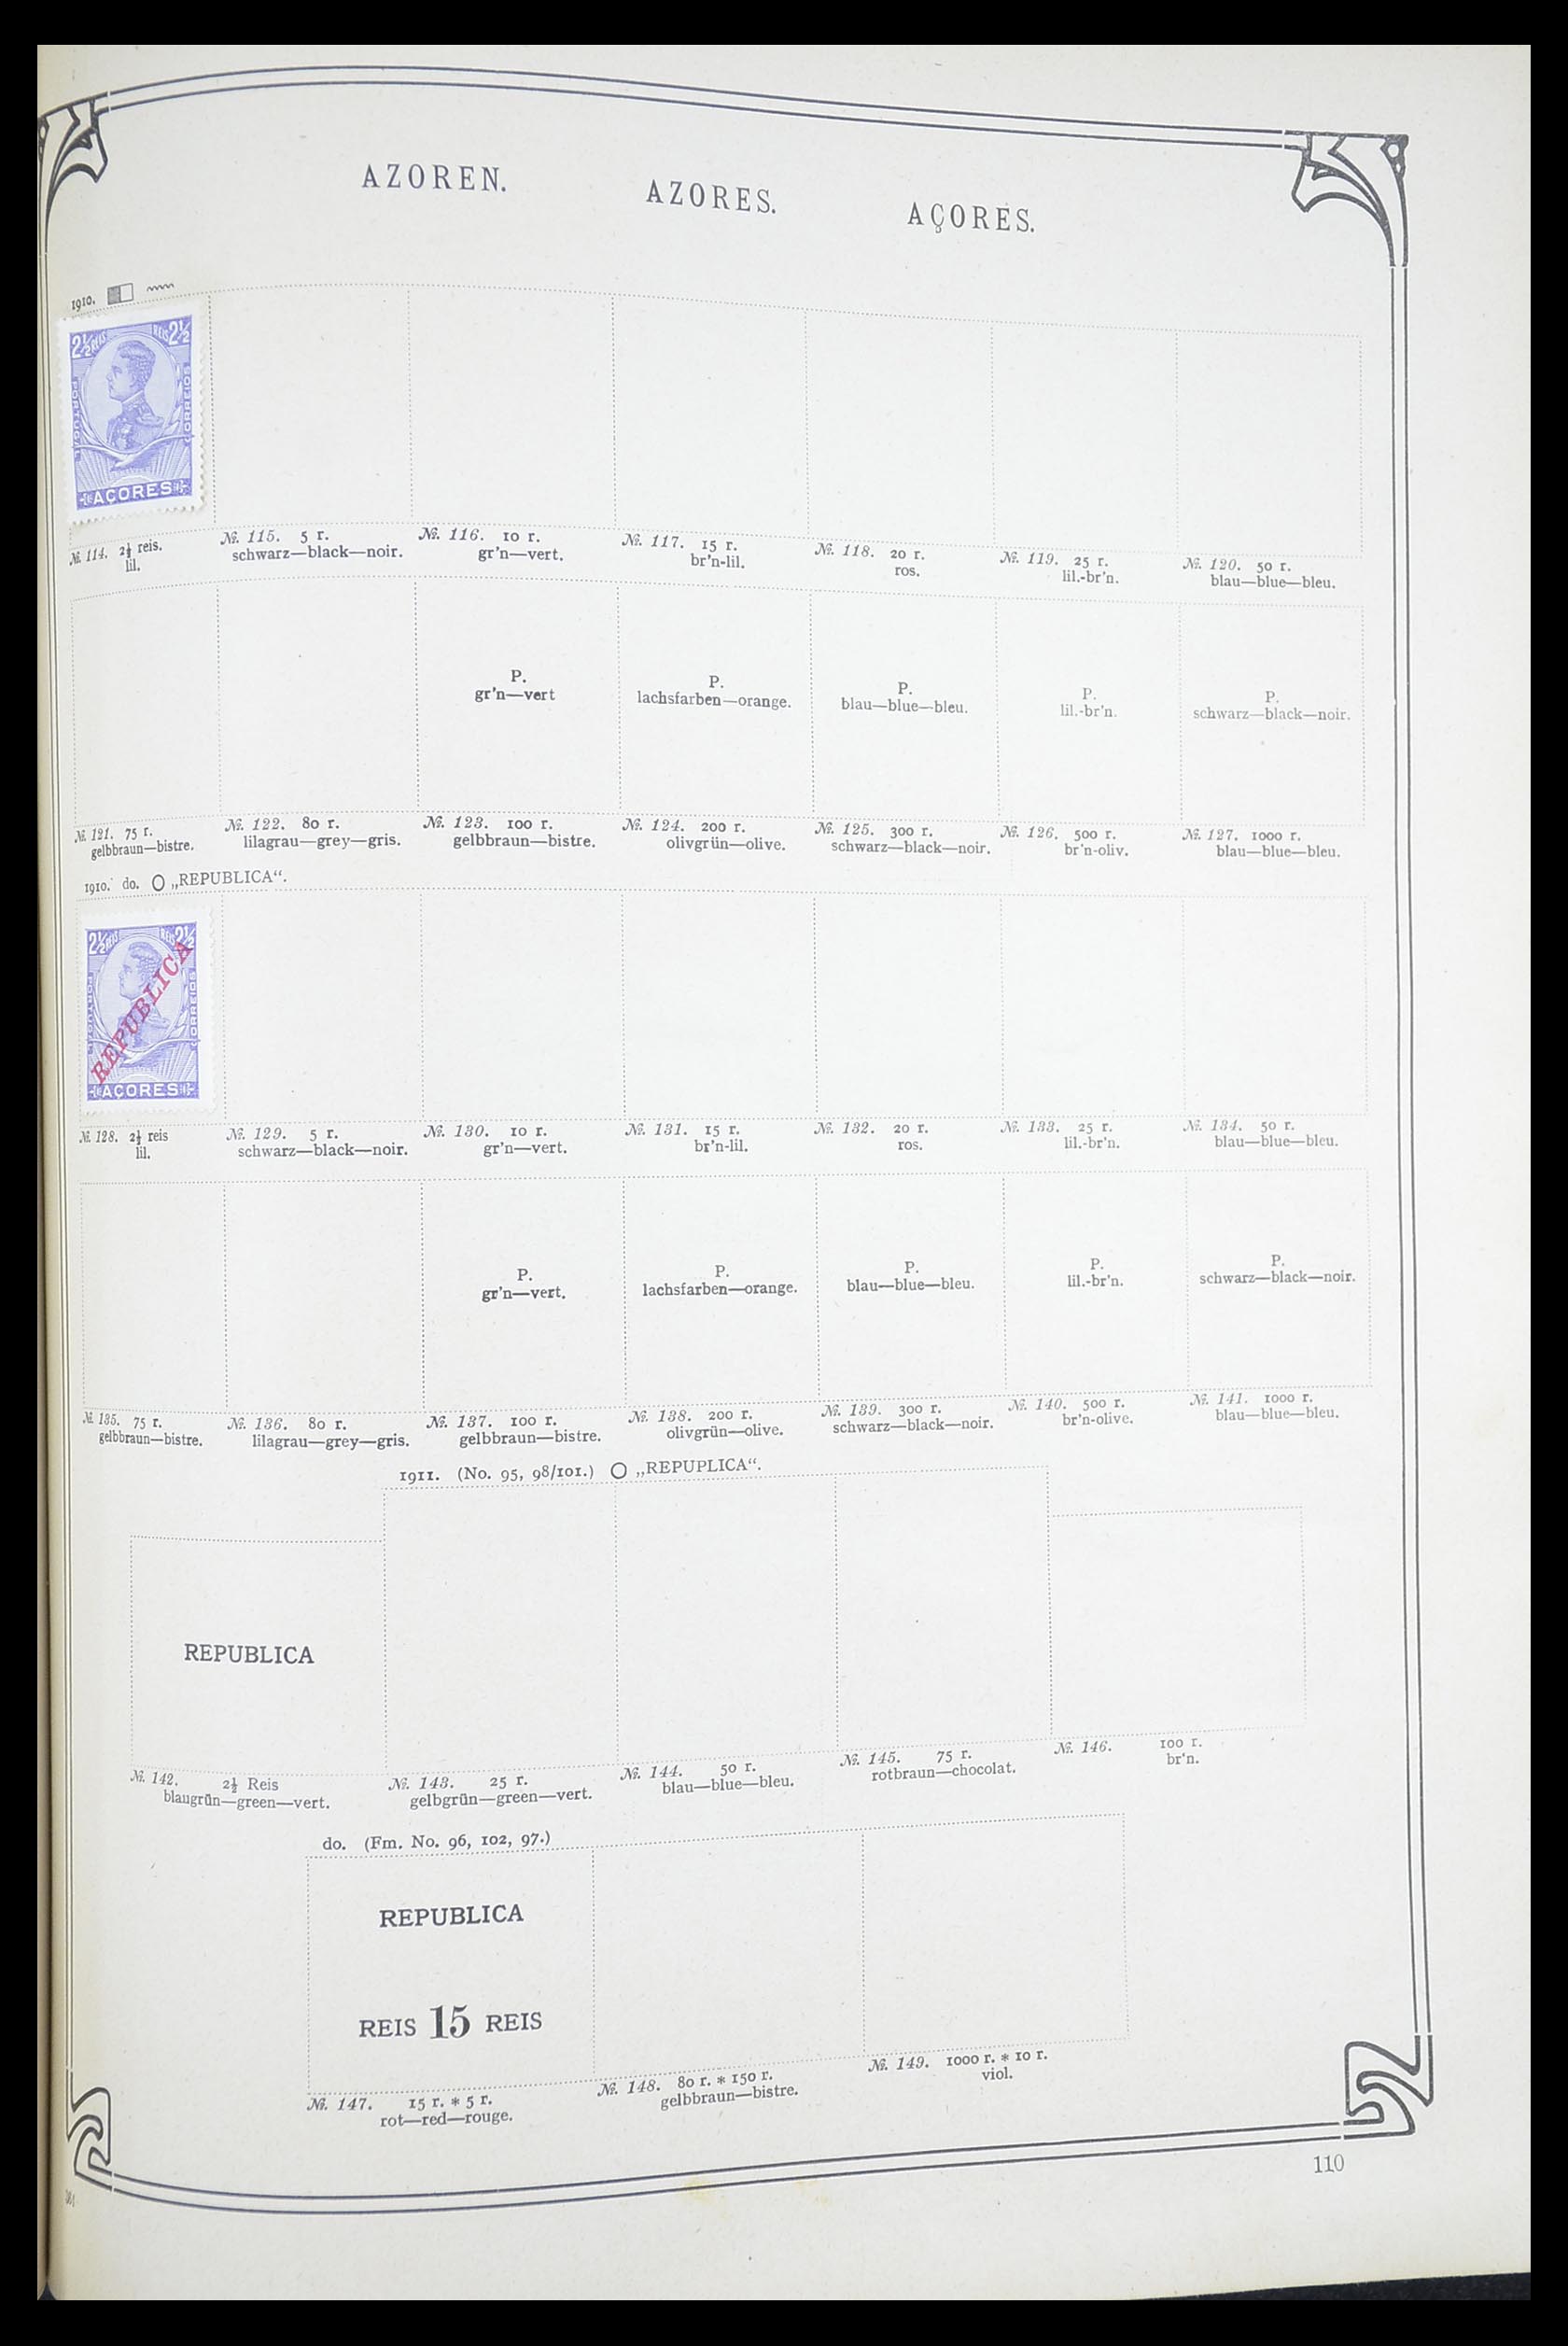 AZOREN. AZORES. AÇORES.
1910.
2½ REIS REIS 2½
PORTUGAL CORREIOS
AÇORES
№. 114. 2½ reis. №. 115. 5 r. №. 116. 10 r. №. 117. 15 r. №. 118. 20 r. №. 119. 25 r. №. 120. 50 r.
lil. schwarz—black—noir. gr'n—vert. br'n-lil. ros. lil.-br'n. blau—blue—bleu.
P. P. P. P. P.
gr'n—vert lachsfarben—orange. blau—blue—bleu. lil.-br'n. schwarz—black—noir.
№. 121. 75 r. №. 122. 80 r. №. 123. 100 r. №. 124. 200 r. №. 125. 300 r. №. 126. 500 r. №. 127. 1000 r.
gelbbraun—bistre. lilagrau—grey—gris. gelbbraun—bistre. olivgrün—olive. schwarz—black—noir. br'n-oliv. blau—blue—bleu.
1910. do. O „REPUBLICA“.
2½ REIS REIS 2½
PORTUGAL CORREIOS
REPUBLICA
AÇORES
№. 128. 2½ reis №. 129. 5 r. №. 130. 10 r. №. 131. 15 r. №. 132. 20 r. №. 133. 25 r. №. 134. 50 r.
lil. schwarz—black—noir. gr'n—vert. br'n-lil. ros. lil.-br'n. blau—blue—bleu.
P. P. P. P. P.
gr'n—vert. lachsfarben—orange. blau—blue—bleu. lil.-br'n. schwarz—black—noir.
№. 135. 75 r. №. 136. 80 r. №. 137. 100 r. №. 138. 200 r. №. 139. 300 r. №. 140. 500 r. №. 141. 1000 r.
gelbbraun—bistre. lilagrau—grey—gris. gelbbraun—bistre. olivgrün—olive. schwarz—black—noir. br'n-olive. blau—blue—bleu.
1911. (No. 95, 98/101.) O „REPUPLICA“.
REPUBLICA
№. 142. 2½ Reis №. 143. 25 r. №. 144. 50 r. №. 145. 75 r. №. 146. 100 r.
blaugrün—green—vert. gelbgrün—green—vert. blau—blue—bleu. rotbraun—chocolat. br'n.
do. (Fm. No. 96, 102, 97.)
REPUBLICA
REIS 15 REIS
№. 147. 15 r. * 5 r. №. 148. 80 r. * 150 r. №. 149. 1000 r. * 10 r.
rot—red—rouge. gelbbraun—bistre. viol.
110